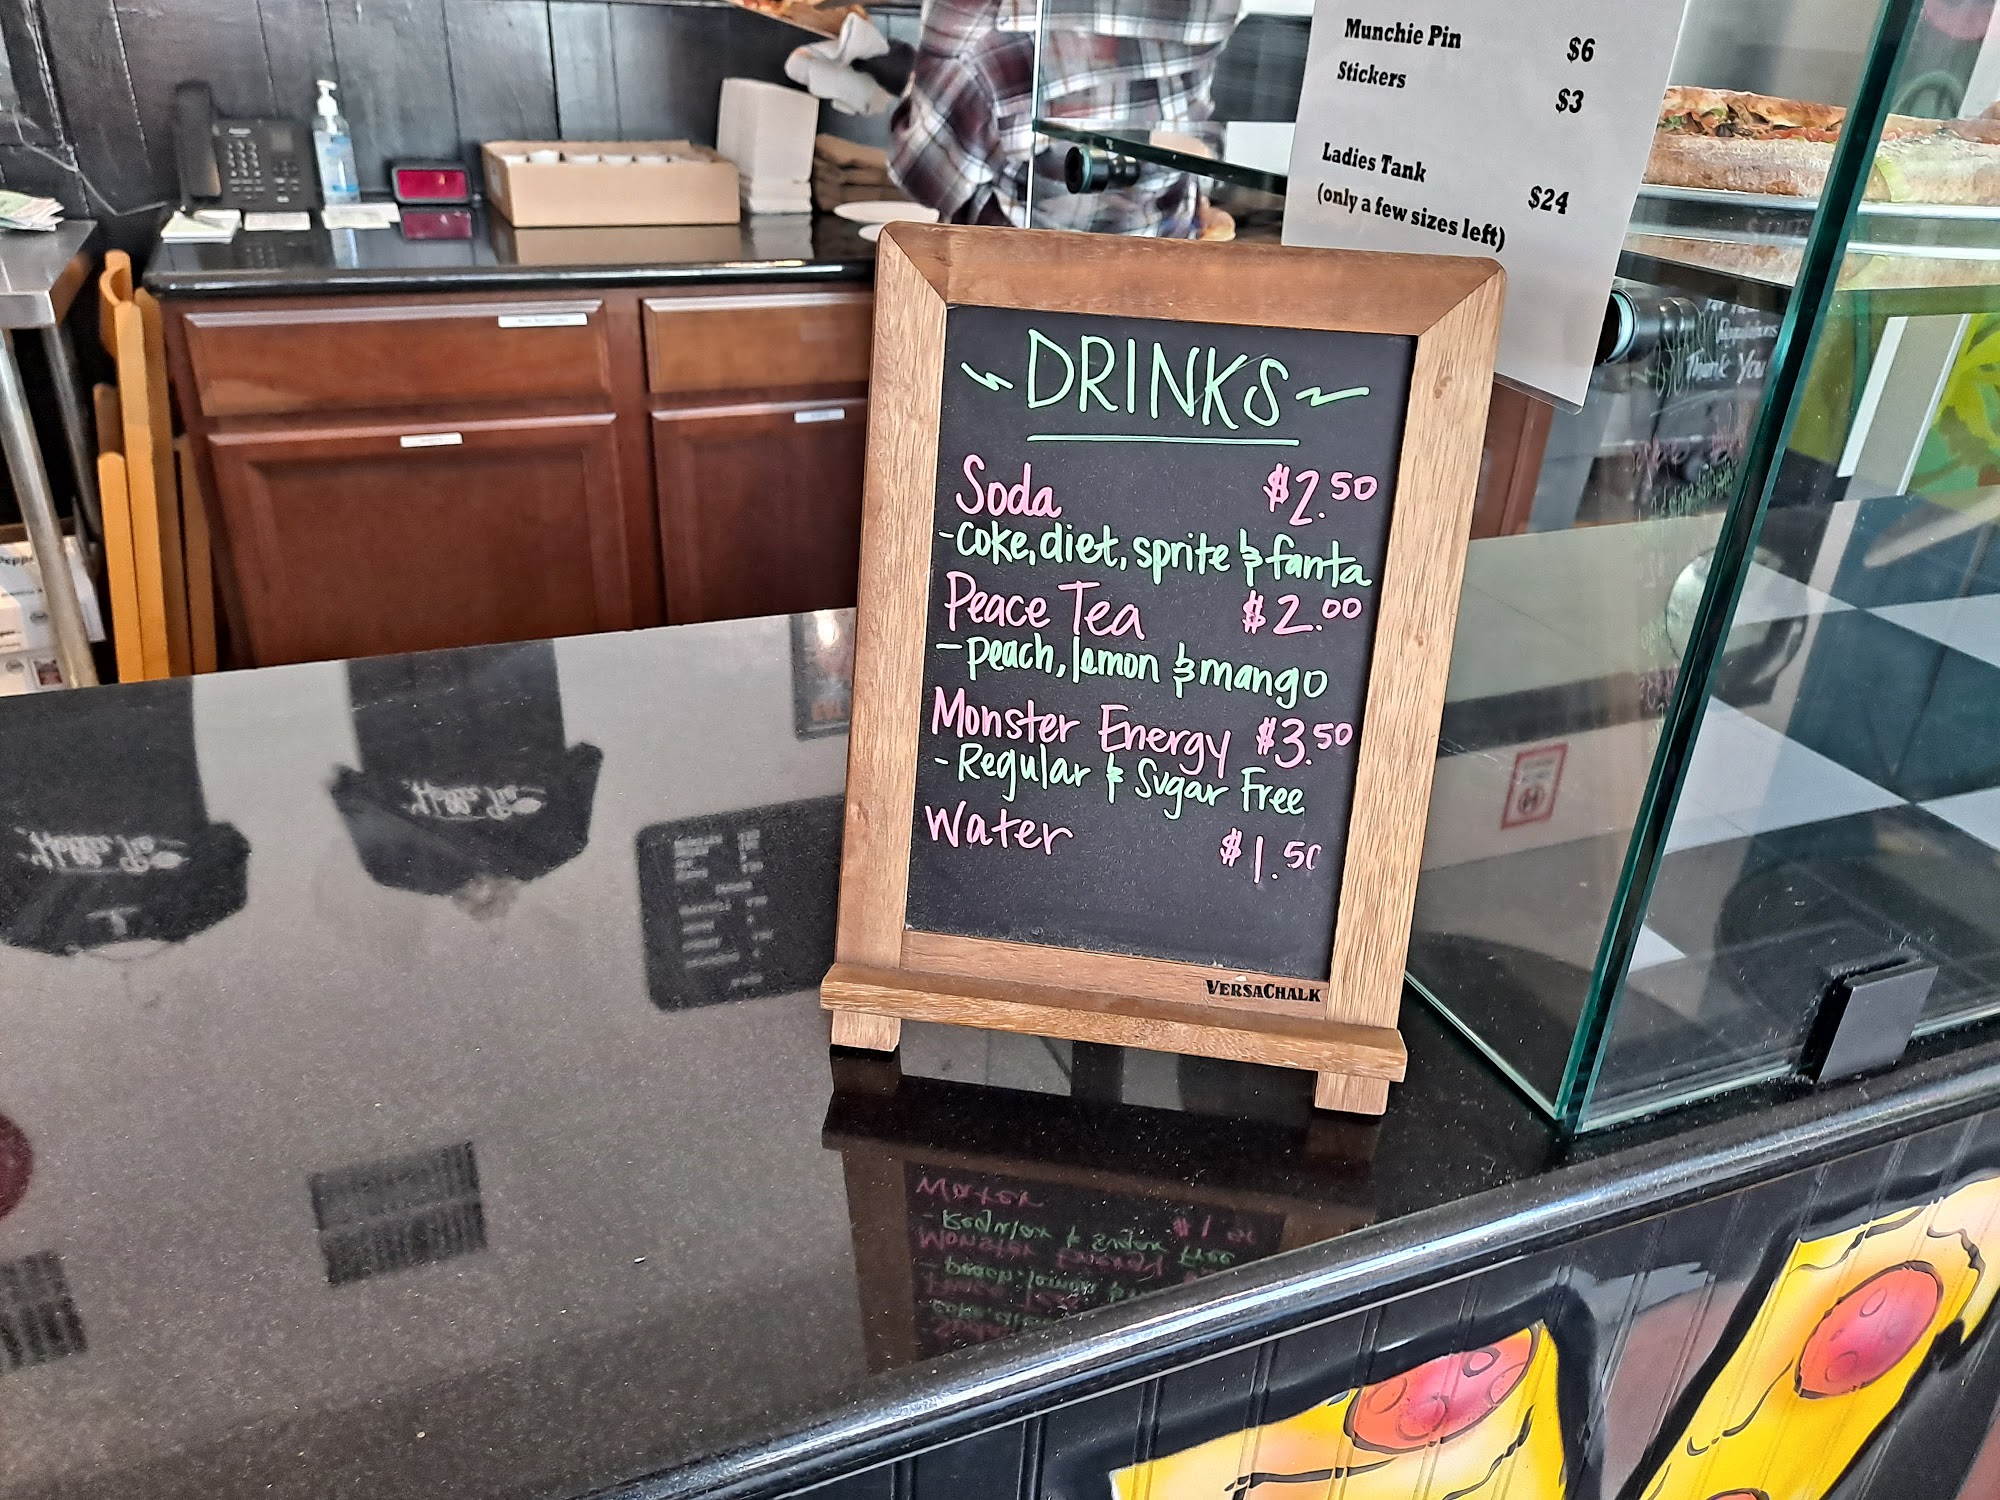 Munchie Pin $6
Stickers $3
Ladies Tank $24
(only a few sizes left)
DRINKS
Soda $2.50
-coke, diet, sprite & fanta
Peace Tea $2.00
- peach, lemon & mango
Monster Energy $3.50
- Regular & Sugar Free
Water $1.50
VERSACHALK
Thank You